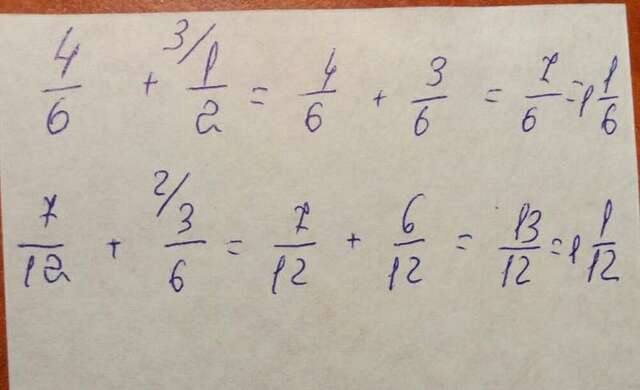 4/6 + 3/ 1/2 = 4/6 + 3/6 = 7/6 = 1 1/6
7/12 + 2/ 3/6 = 7/12 + 6/12 = 13/12 = 1 1/12